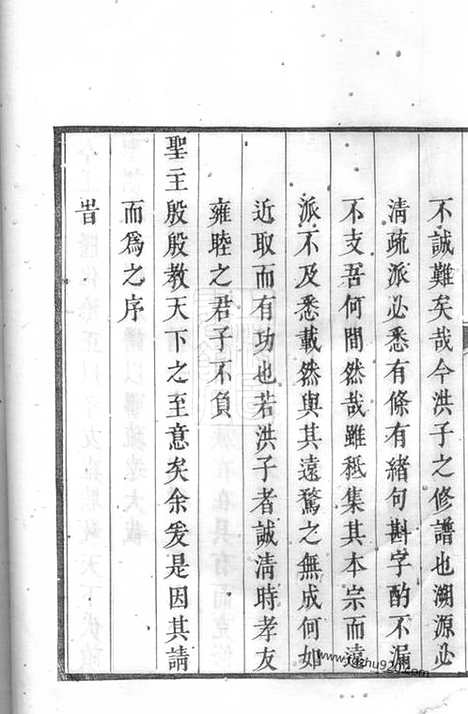 不誠難矣哉今洪子之修譜也溯源必
清疏派必悉有條有緒句斟字酌不漏
不支吾何間然哉雖秪集其本宗而遠
派不及悉載然與其遠騖之無成何如
近取而有功也若洪子者誠清時孝友
雍睦之君子不負
聖主殷殷教天下之至意矣余爰是因其請
而為之序
旹